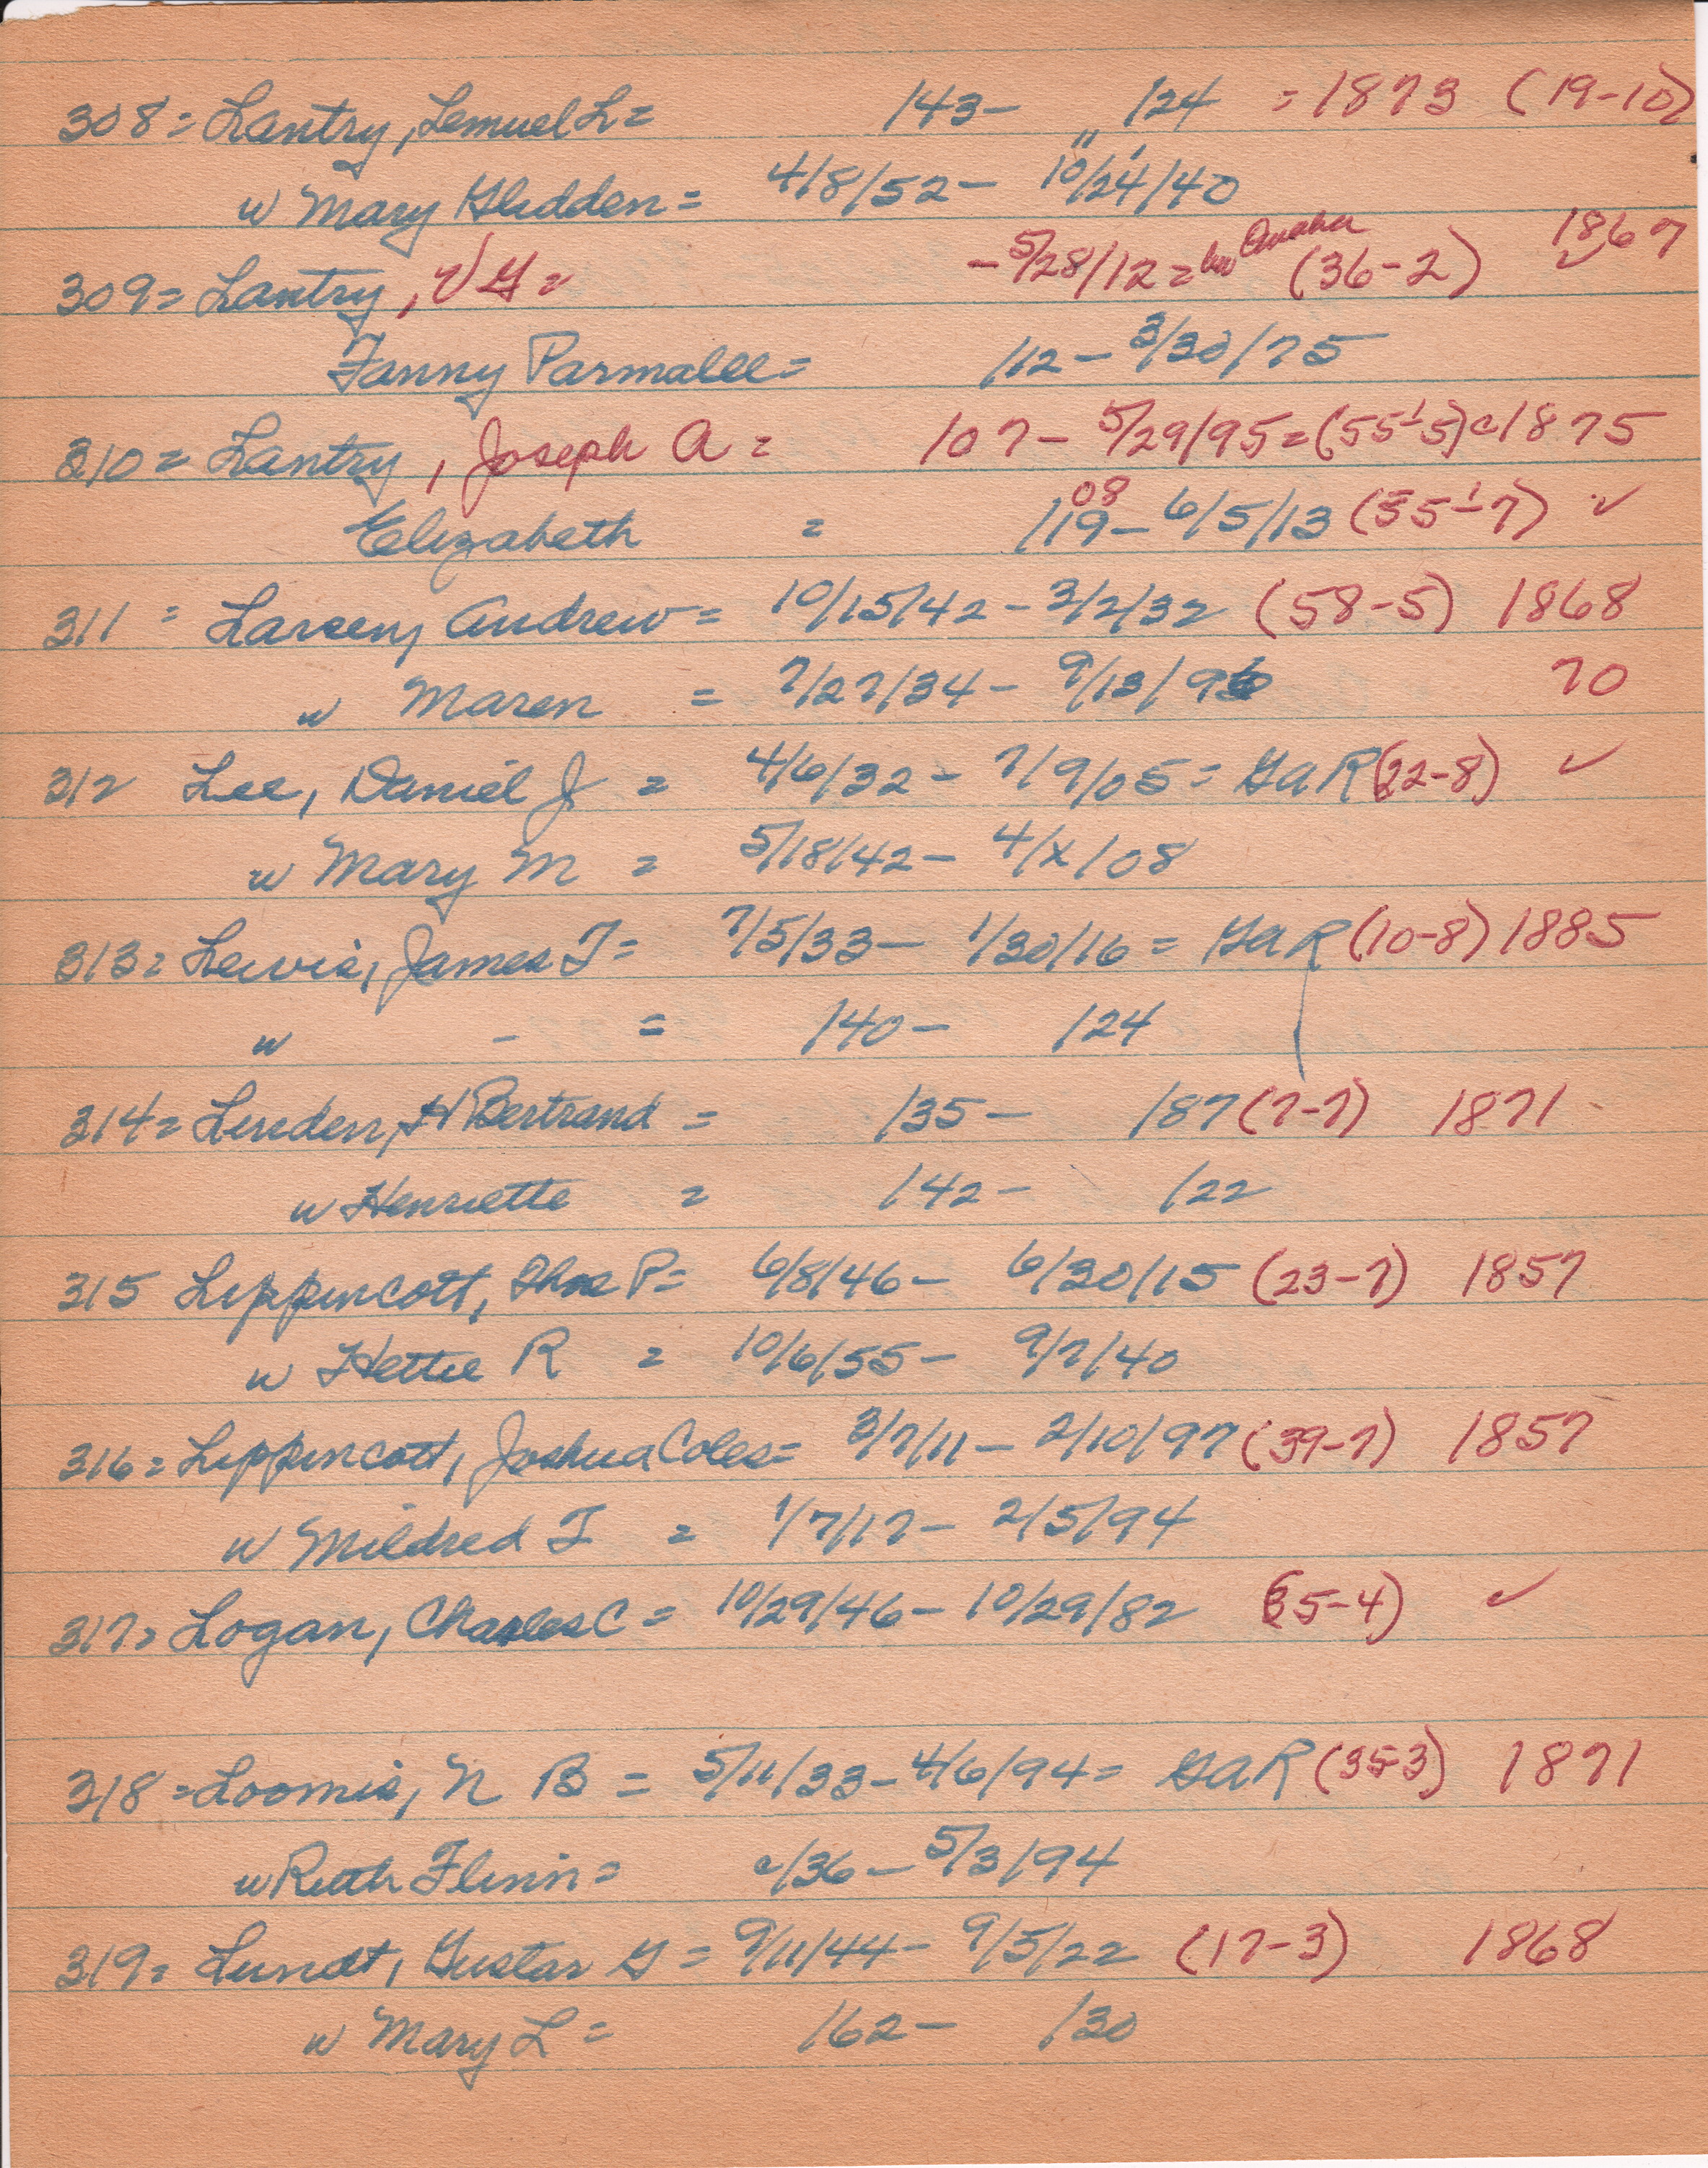 308 = Lantry, Lemuel L = /43 - /24 = 1873 (19-10)
w Mary Glidden = 4/8/52 - 10/24/40
309 = Lantry, V G = - 5/28/12 = Omaha (36-2) 1867
Fanny Parmalee = /12 - 3/30/75
310 = Lantry, Joseph A = /07 - 5/29/95 = (55-5) c 1875
Elizabeth = /19 08 - 6/5/13 (55-7) ✓
311 = Larsen, Andrew = 10/15/42 - 3/2/32 (58-5) 1868
w Maren = 7/27/34 - 9/13/96 70
312 Lee, Daniel J = 4/6/32 - 7/9/05 = GAR (22-8) ✓
w Mary M = 5/18/42 - 4/x/08
313 = Lewis, James T = 7/5/33 - 1/30/16 = GAR (10-8) 1885
w - = /40 - /24
314 = Linden, H Bertrand = /35 - /87 (7-7) 1871
w Henriette = /42 - /22
315 Lippincott, Thos P = 6/8/46 - 6/30/15 (23-7) 1857
w Hettie R = 10/6/55 - 9/7/40
316 = Lippincott, Joshua Coles = 3/7/11 - 2/10/97 (39-7) 1857
w Mildred T = 1/7/17 - 2/5/94
317 = Logan, Charles C = 10/29/46 - 10/29/82 (35-4) ✓
318 = Loomis, N B = 5/11/33 - 4/6/94 = GAR (35-3) 1871
w Ruth Flinn = c/36 - 5/3/94
319 = Lundt, Gustav G = 9/11/44 - 9/5/22 (17-3) 1868
w Mary L = /62 - /30